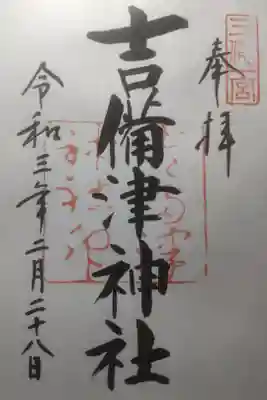 奉拝
吉備津神社
令和三年二月二十八日